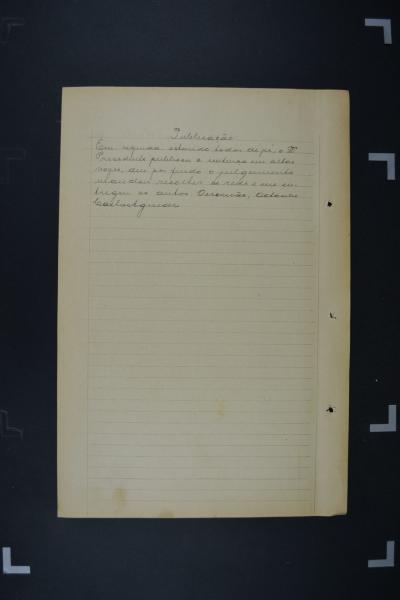 Publicação
Em seguida estando todos de pé, o Dr
Presidente publicou a sentença em altas
vozes, deu por findo o julgamento
mandou recolher os reos e me en-
tregou os autos. Escrivão,
Carlos Aguiar